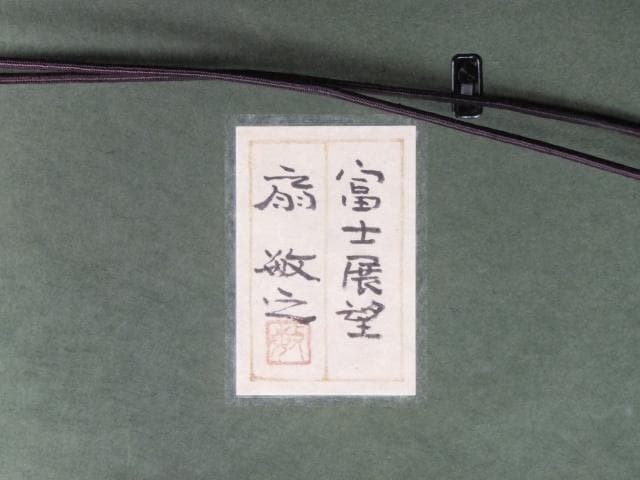 富士展望
扇敏之